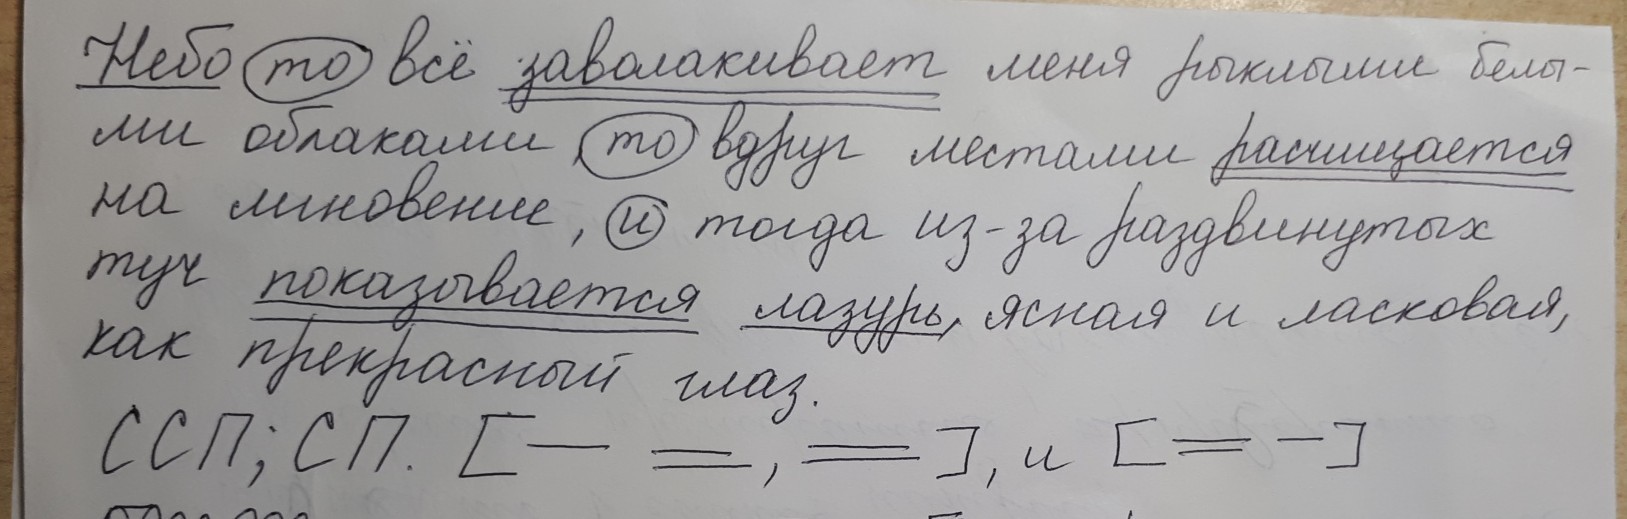 Небо то всё заволакивает меня рыклыми белы-
ми облаками, то вдруг местами расчищается
на мгновение, и тогда из-за раздвинутых
туч показывается лазурь, ясная и ласковая,
как прекрасный глаз.
ССП; СП. [— =, =], и [= —]